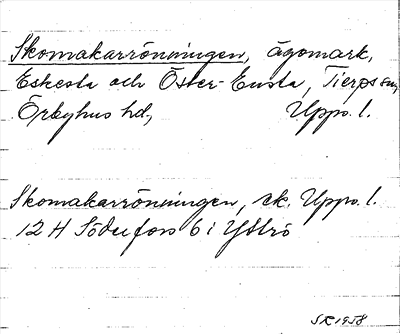 Skomakarrönningen, ägomark,
Eskesta och Öster-Ensta, Tierps sn,
Örbyhus hd, Upps. l.
Skomakarrönningen, ek. Upps. l.
12 H Söderfors 6 i Ytbrö
SR 1958